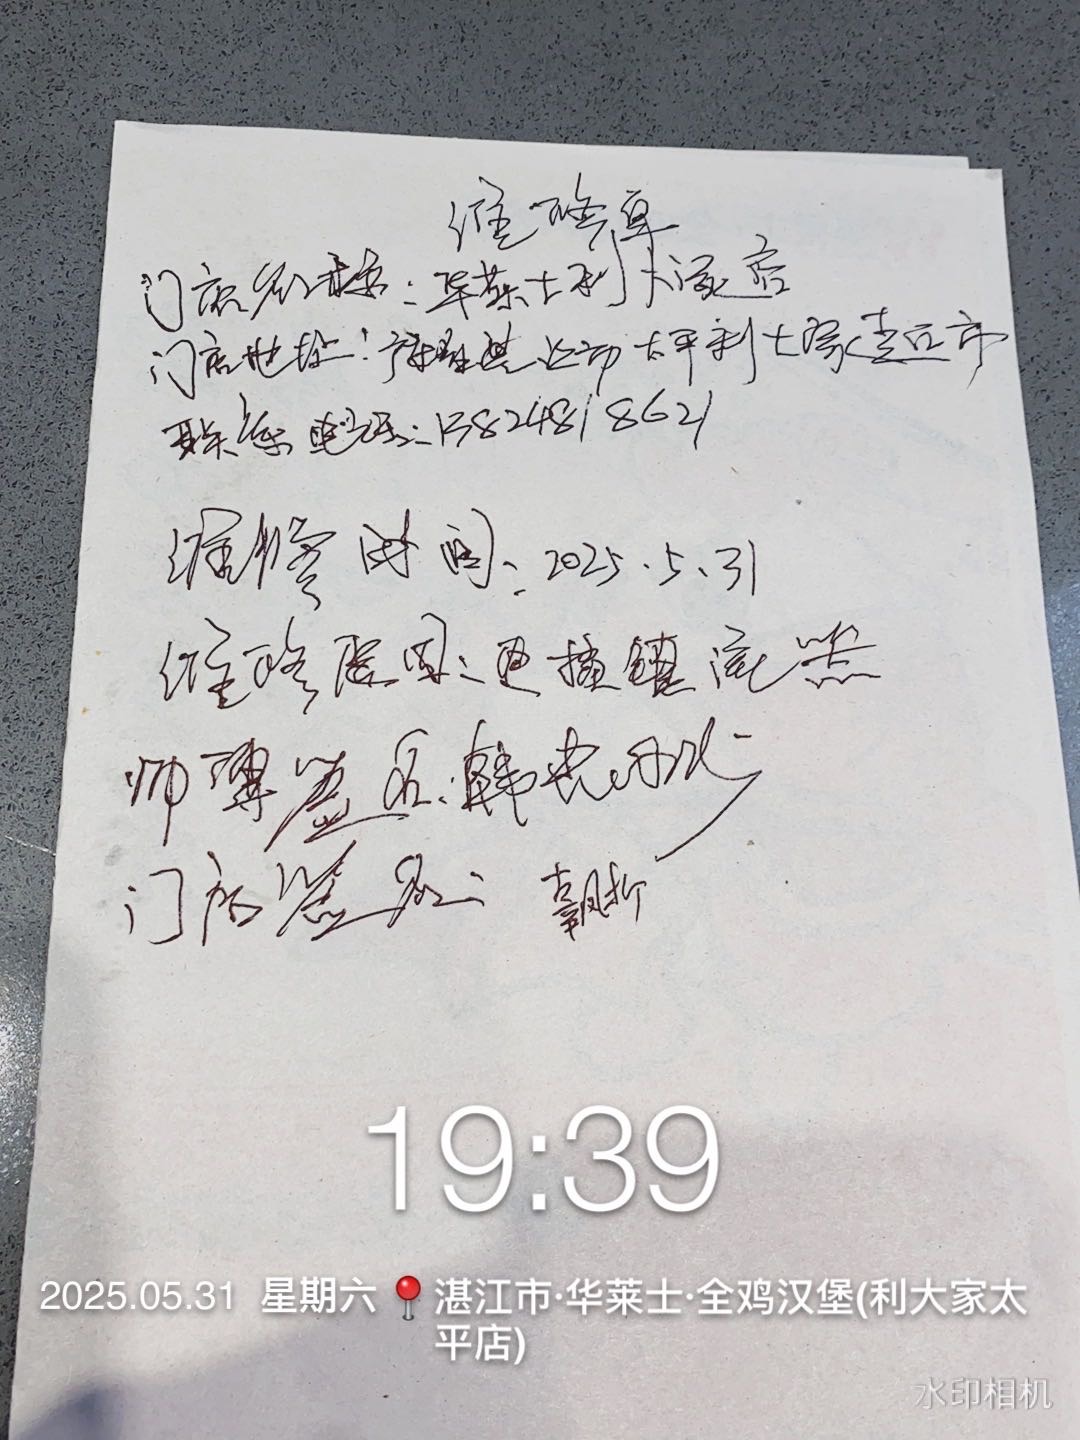 维修单
门店名称：华莱士利大家店
门店地址：湛江市太平利大家超市
联系电话：13824818621
维修时间：2025.5.31
维修原因：更换镇流器
师傅签名：韩
门店签名：
19:39
2025.05.31 星期六 湛江市·华莱士·全鸡汉堡(利大家太
平店)
水印相机